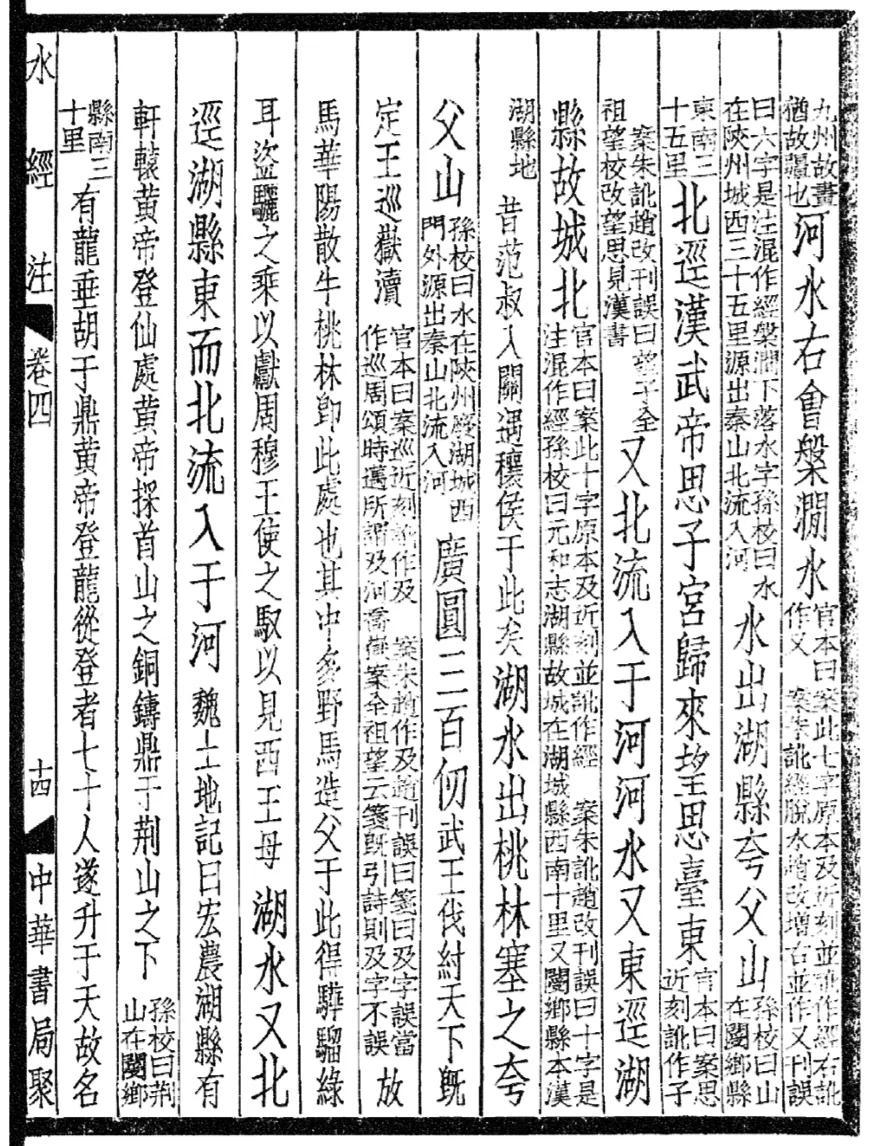 九州故畫猶故疆也河水右會槃澗水官本曰案此七字原本及近刻並訛作經右訛作又 案朱訛經脫水趙改增右並作又刊誤
曰六字是注混作經槃澗下落水字孫校曰水在陝州城西三十五里源出秦山北流入河水出湖縣夸父山孫校曰山在閿鄉縣
東南三十五里北逕漢武帝思子宮歸來望思臺東官本曰案思近刻訛作子
案朱訛趙改刊誤曰望子全祖望校改望思見漢書又北流入于河河水又東逕湖
縣故城北官本曰案此十字原本及近刻並訛作經 案朱訛趙改刊誤曰十字是注混作經孫校曰元和志湖縣故城在湖城縣西南十里又閿鄉縣本漢
湖縣地昔范叔入關遇穰侯于此矣湖水出桃林塞之夸
父山孫校曰水在陝州廢湖城西門外源出秦山北流入河廣圓三百仞武王伐紂天下旣
定王巡嶽瀆官本曰案巡近刻訛作及 案朱趙作及趙刊誤曰箋曰及字誤當作巡周頌時邁所謂及河喬嶽案全祖望云箋旣引詩則及字不誤放
馬華陽散牛桃林卽此處也其中多野馬造父于此得驊騮綠
耳盜驪之乘以獻周穆王使之馭以見西王母湖水又北
逕湖縣東而北流入于河魏土地記曰宏農湖縣有
軒轅黃帝登仙處黃帝採首山之銅鑄鼎于荊山之下孫校曰荊山在閿鄉
縣南三十里有龍垂胡于鼎黃帝登龍從登者七十人遂升于天故名
水經注 卷四 十四 中華書局聚